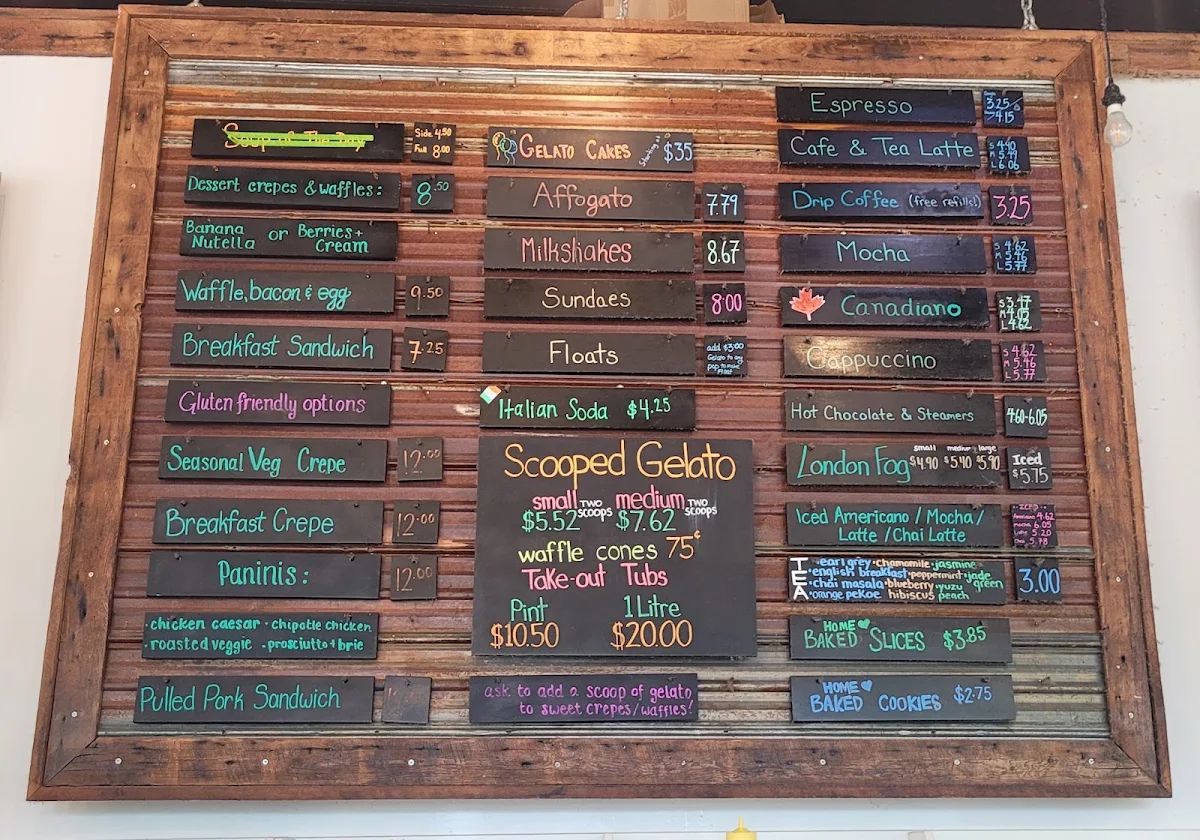 Soup of The Day Side 4.50
Full 8.00
Dessert crepes & waffles: 8.50
Banana or Berries +
Nutella Cream
Waffle, bacon & egg 9.50
Breakfast Sandwich 7.25
Gluten friendly options
Seasonal Veg Crepe 12.00
Breakfast Crepe 12.00
Paninis: 12.00
· chicken caesar · chipotle chicken
· roasted veggie · prosciutto + brie
Pulled Pork Sandwich
Gelato Cakes Starting @ $35
Affogato 7.79
Milkshakes 8.67
Sundaes 8.00
Floats add $3.00
Gelato to any
pop to make
Float
Italian Soda $4.25
Scooped Gelato
small TWO SCOOPS medium TWO SCOOPS
$5.52 $7.62
waffle cones 75¢
Take-out Tubs
Pint 1 Litre
$10.50 $20.00
ask to add a scoop of gelato
to sweet crepes/waffles!
Espresso 3.25
4.15
Cafe & Tea Latte S 4.90
M 5.49
L 6.06
Drip Coffee (free refills!) 3.25
Mocha S 4.62
M 5.46
L 5.77
Canadiano S 3.47
M 4.05
L 4.62
Cappuccino S 4.62
M 5.46
L 5.77
Hot Chocolate & Steamers 4.60-6.05
London Fog small $4.90 medium $5.40 large $5.90 Iced
$5.75
Iced Americano / Mocha / ICED
Latte / Chai Latte Americano 4.62
mocha 6.05
Latte 5.20
Chai 5.78
TEA · earl grey · chamomile · jasmine
· english breakfast · peppermint · jade
· chai masala · blueberry yuzu green
· orange pekoe hibiscus peach 3.00
HOME
BAKED SLICES $3.85
HOME
BAKED COOKIES $2.75